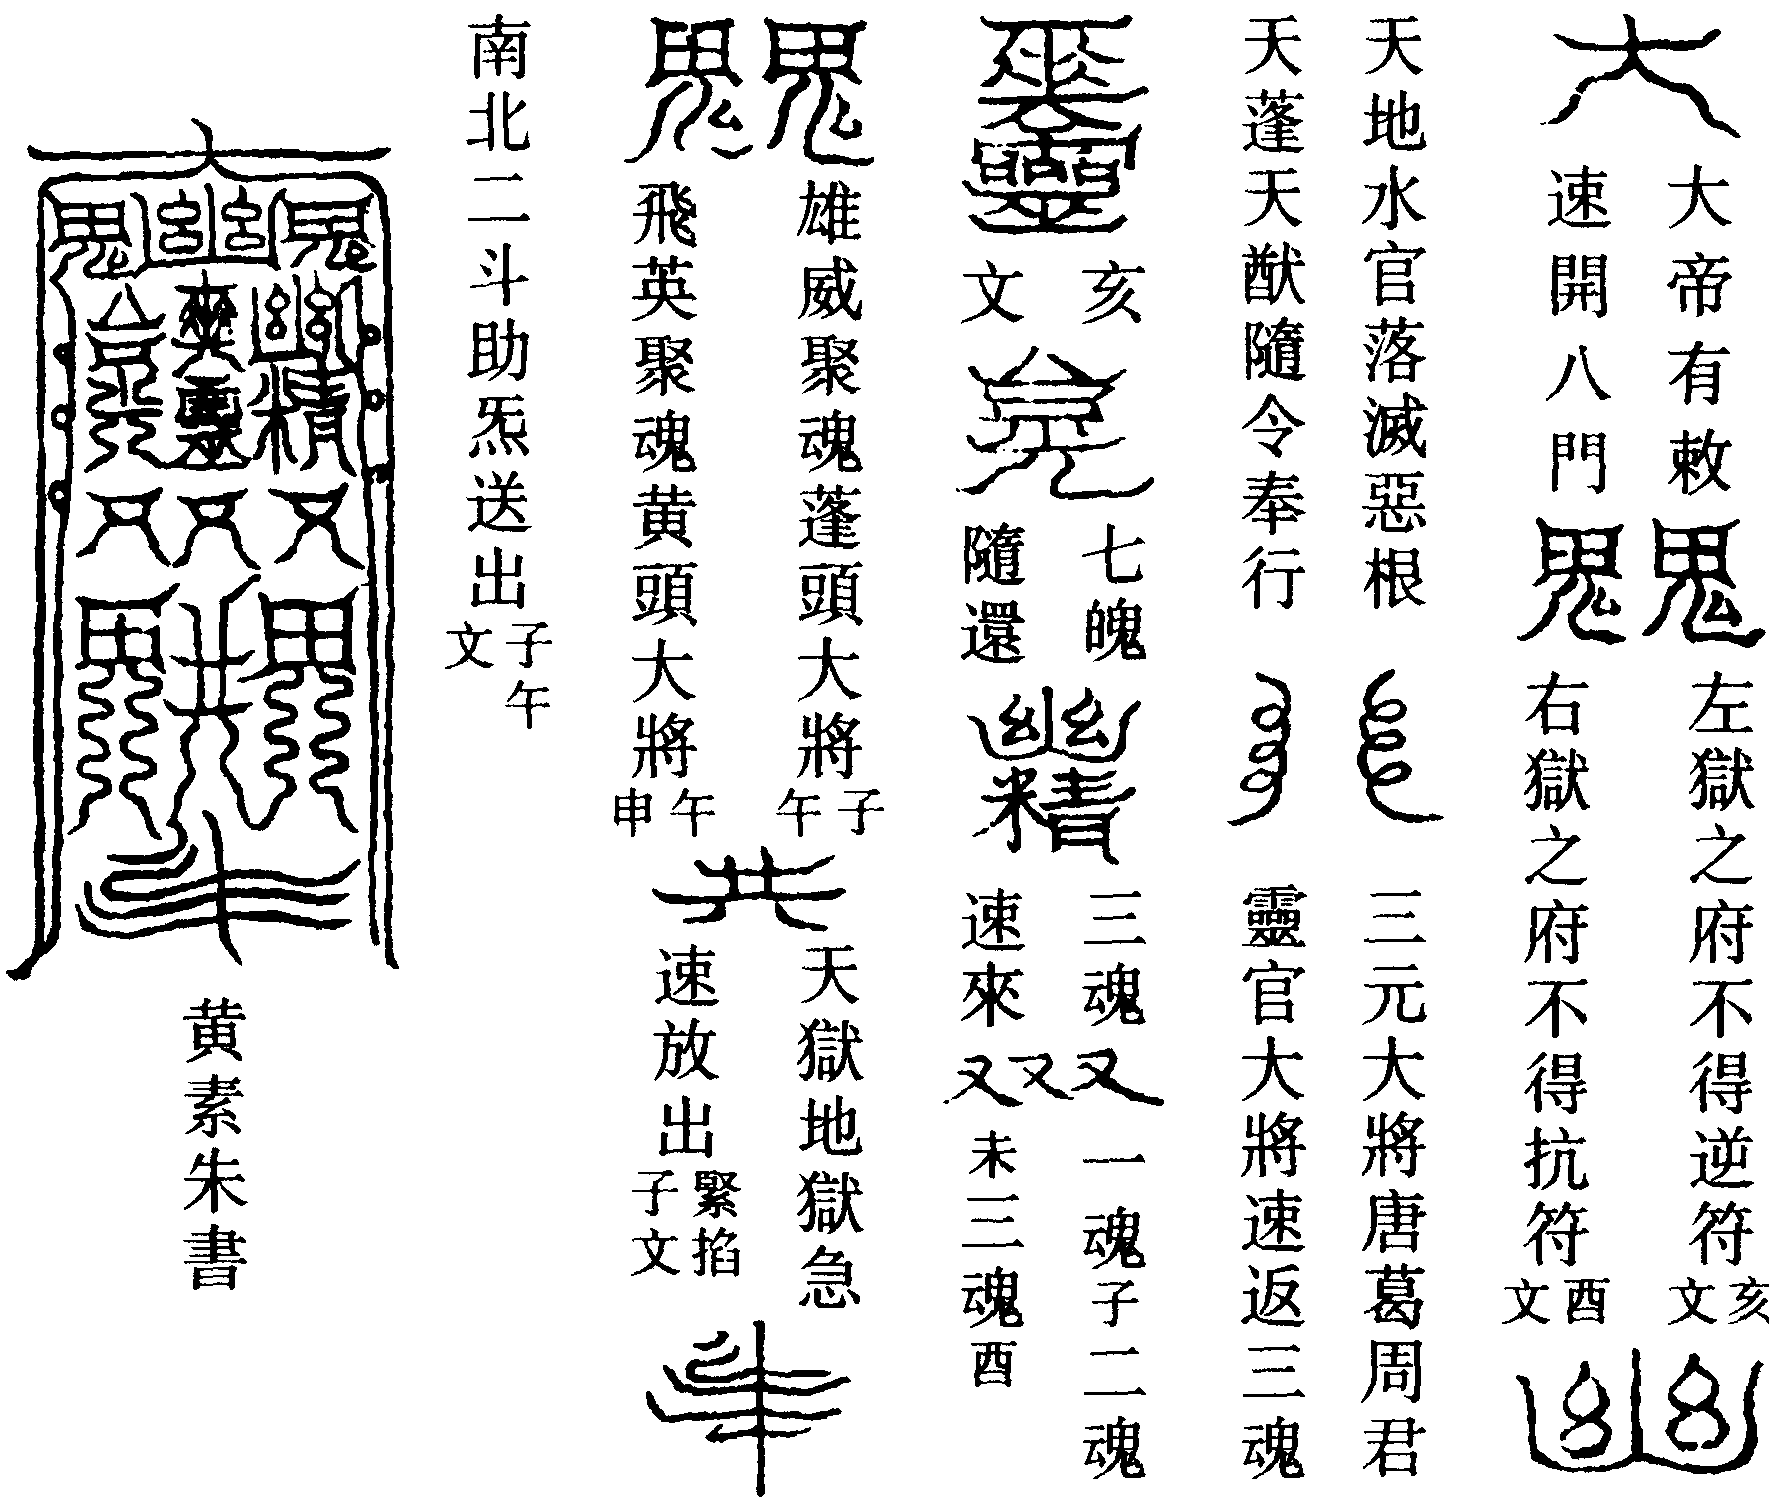 大帝有敕
速開八門
左獄之府不得逆符亥文
右獄之府不得抗符酉文
天地水官落滅惡根
天蓬天猷隨令奉行
三元大將唐葛周君
靈官大將速返三魂
亥文
七魄隨還
三魂速來
一魂子二魂未三魂酉
雄威聚魂蓬頭大將子午
飛英聚魂黄頭大將午申
天獄地獄急速放出緊掐子文
南北二斗助炁送出子午文
黄素朱書